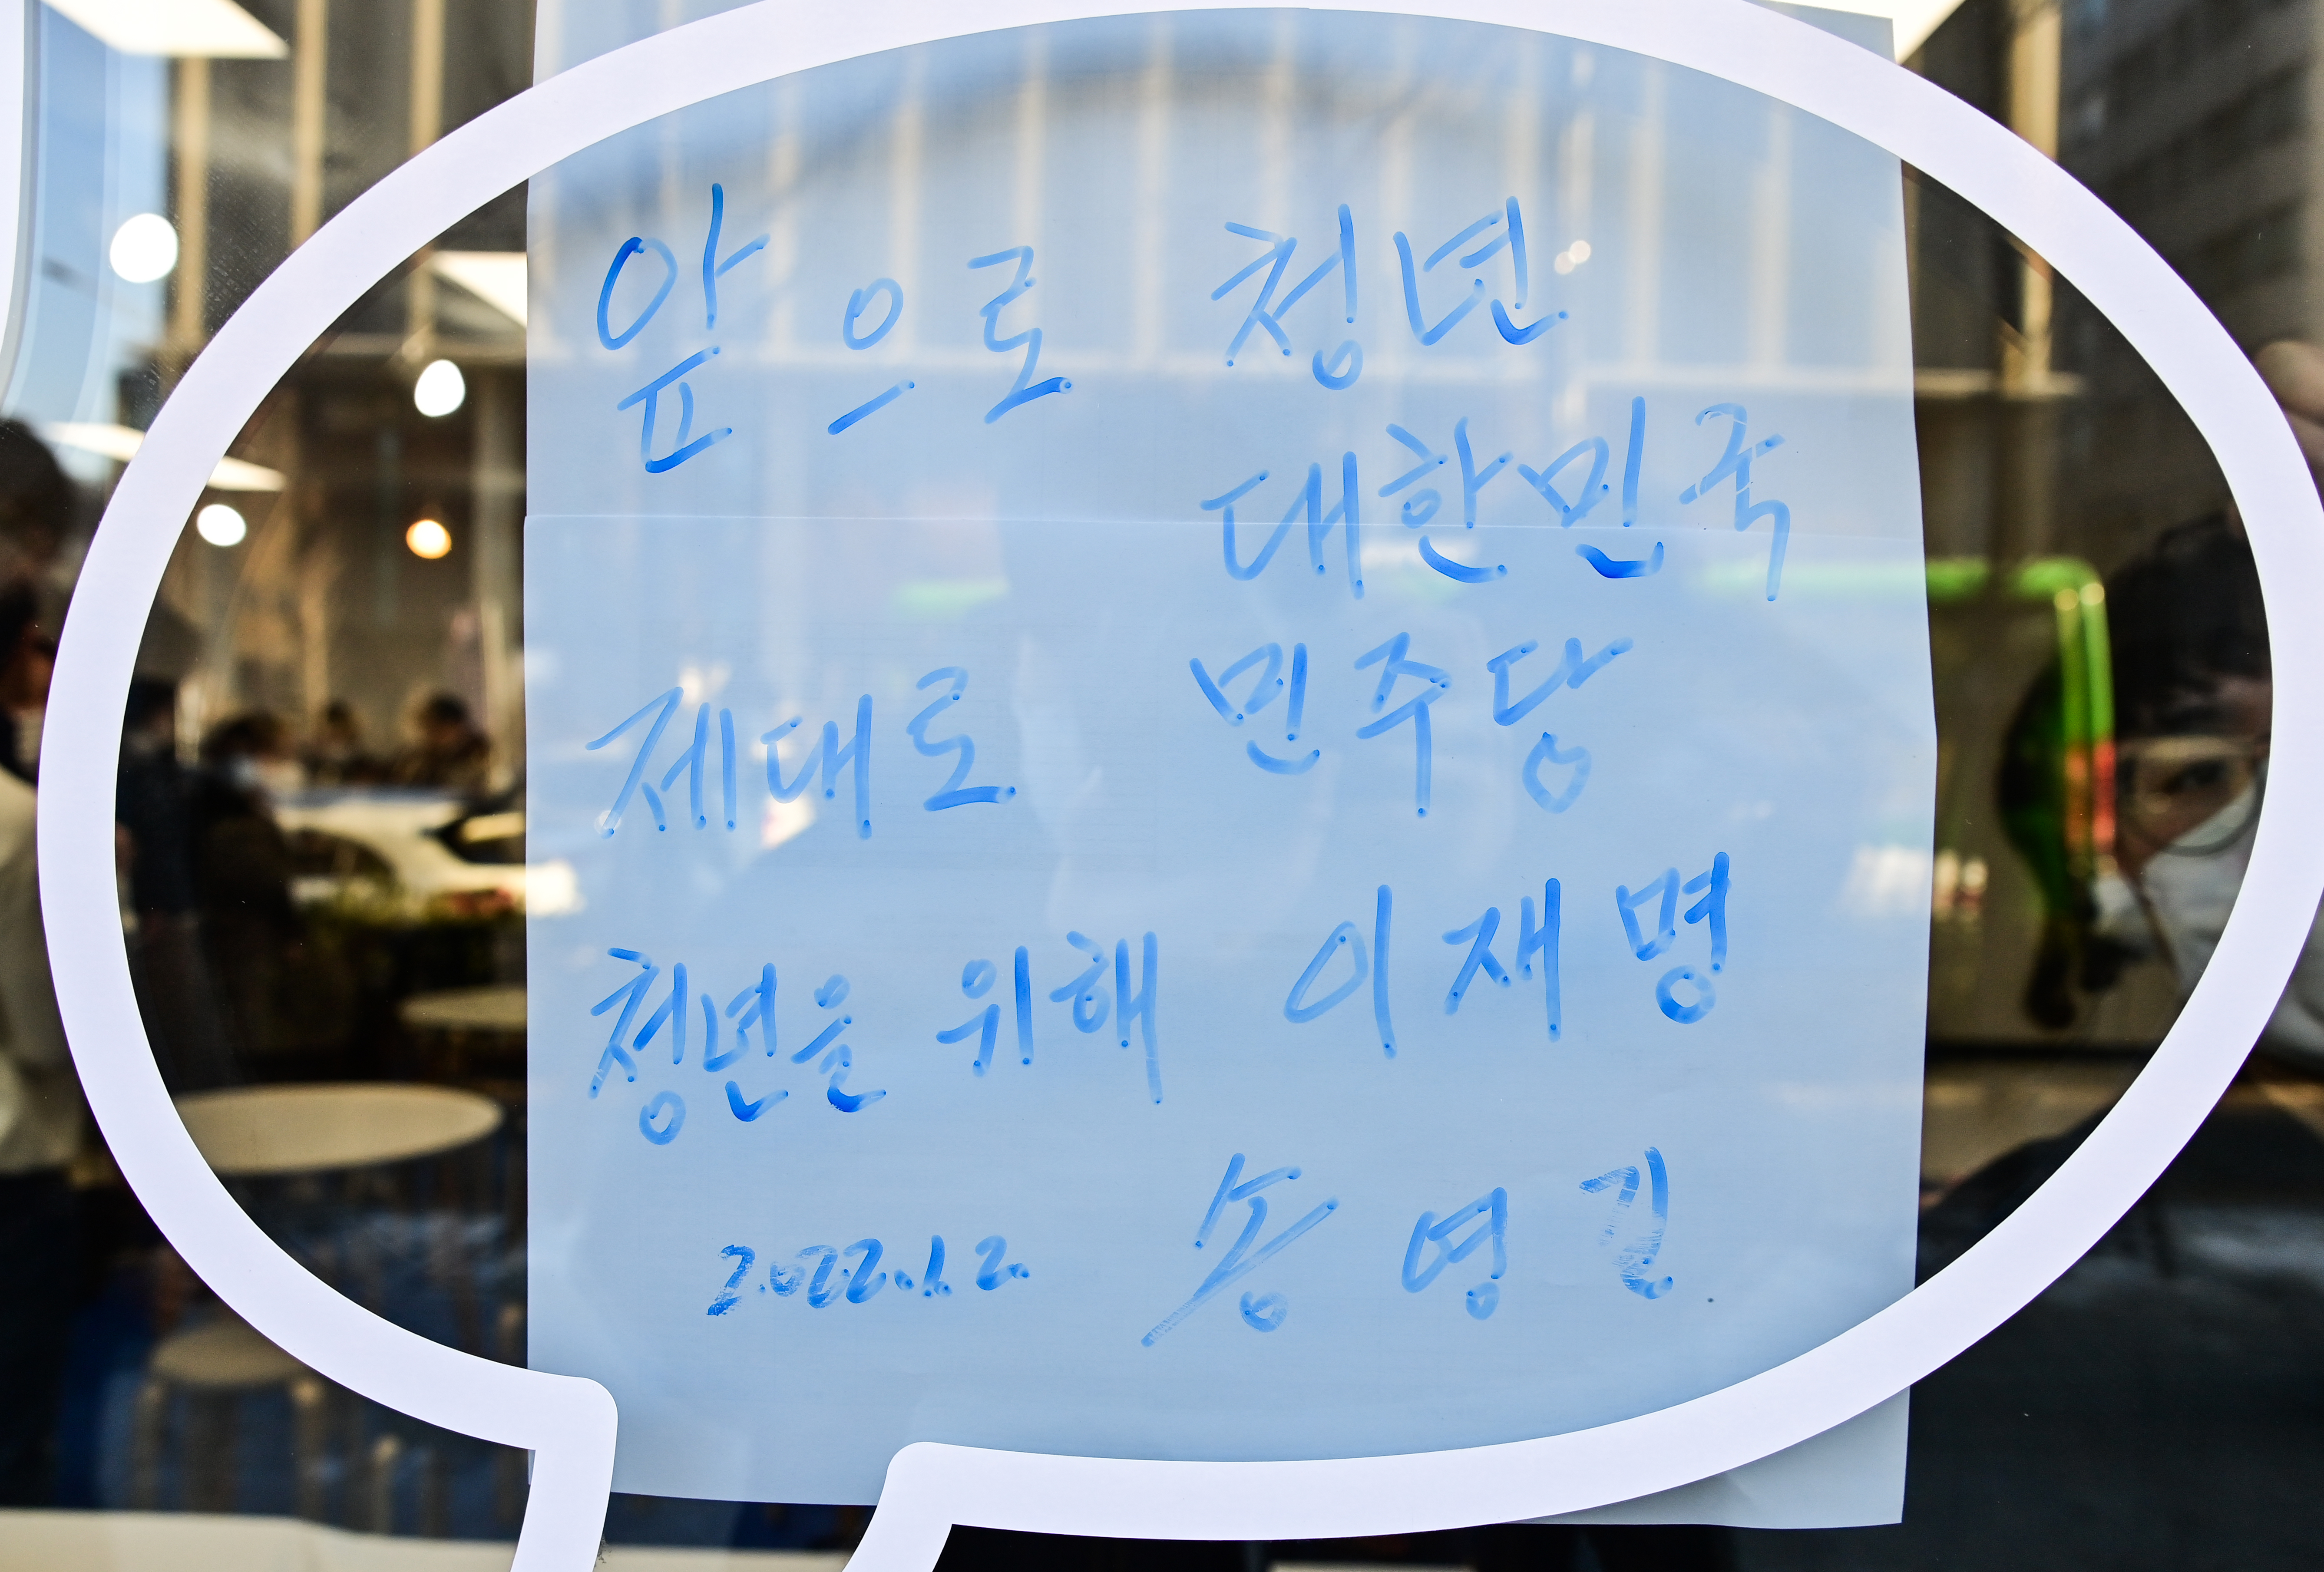 앞으로 청년
대한민국
제대로 민주당
청년을 위해 이재명
2022.1.2. 송영길